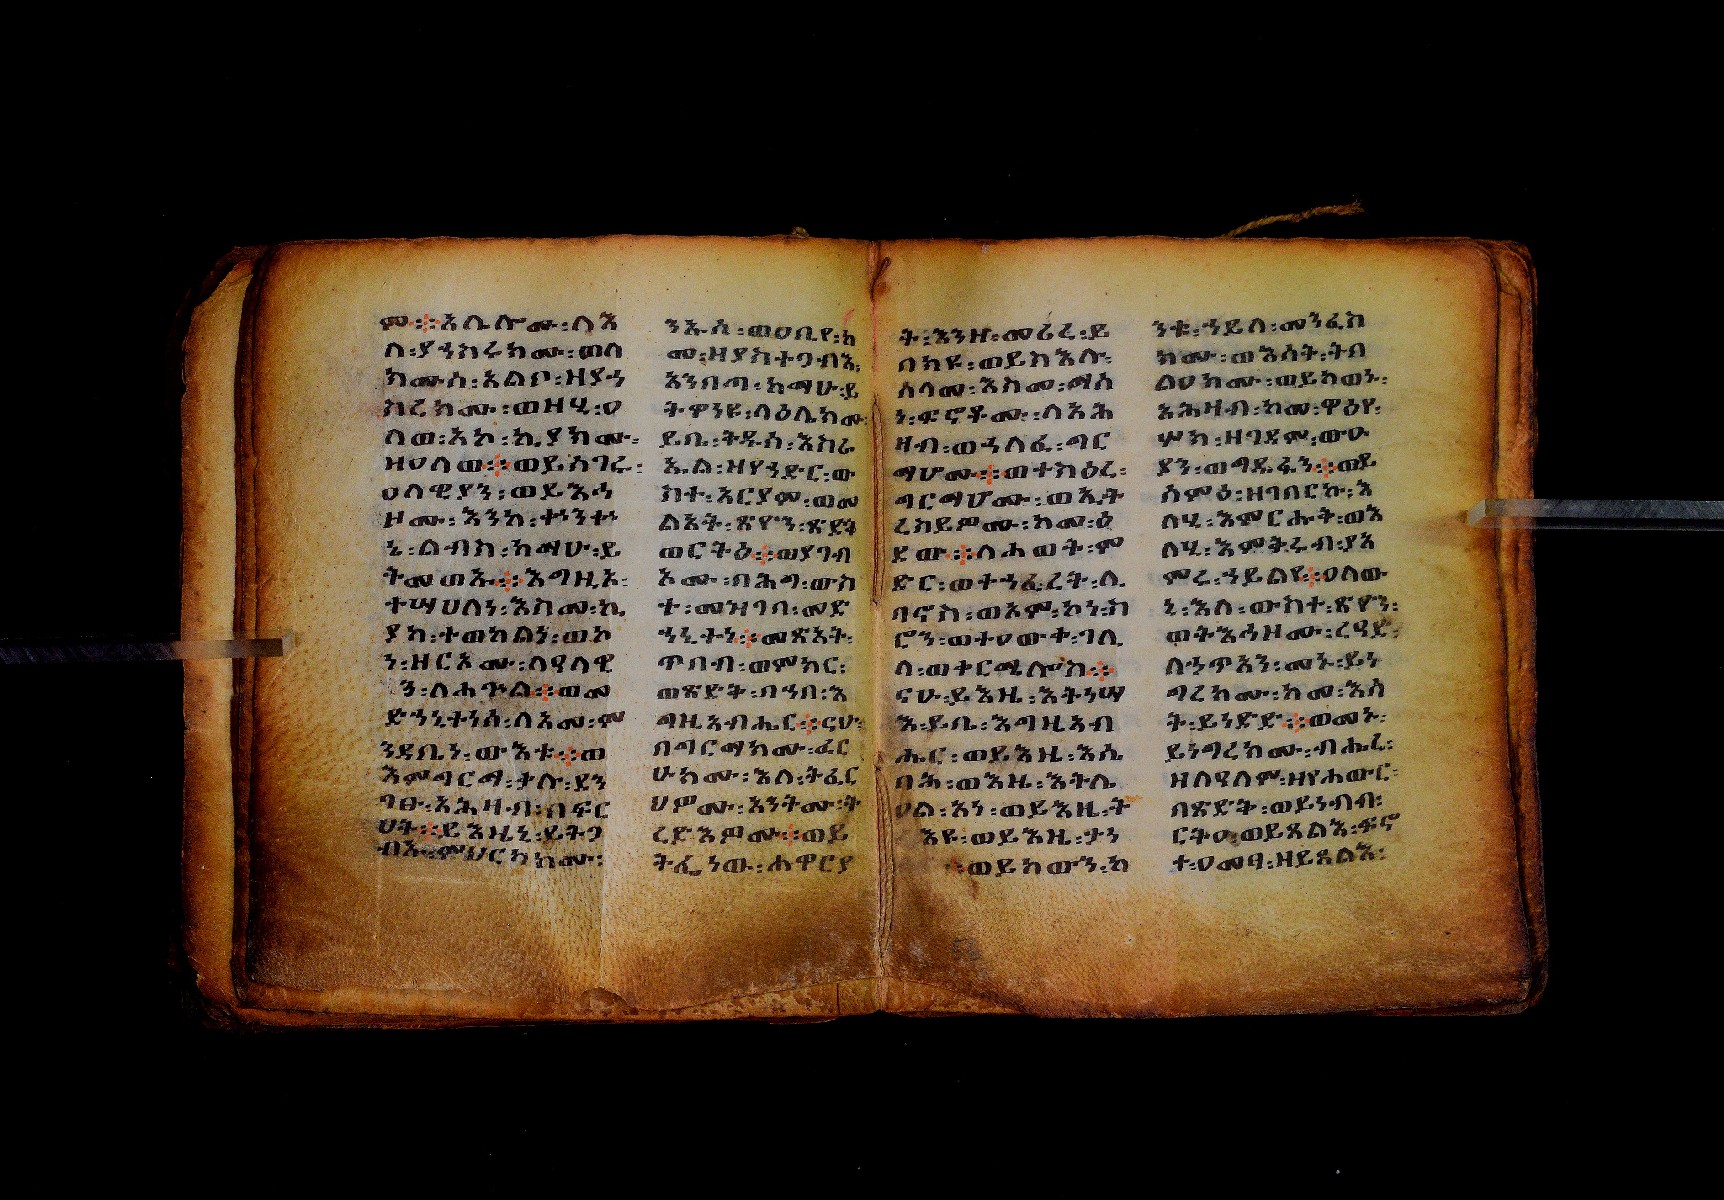 ም፨እሉ፡ሎሙ፡ለእ
ለ፡ያኀስሩክሙ፡ወለ
ክሙሰ፡አልቦ፡ዘያኀ
ስረክሙ፡ወዝሂ፡ዐ
ለወ፡አኮ፡ኪያክሙ፡
ዘዐለወ፨ወይሰገሩ፡
ዐለዊያን፡ወይእኅ
ዞሙ፡እንከ፡ተነንተነ
ኒ፡ልብክ፡ከማሁ፡ይ
ትመወእ፨እግዚኦ፡
ተሣሀለነ፡እስመ፡ኪ
ያከ፡ተወከልነ፡ወኮ
ነ፡ዘርኦሙ፡ለዓለዊ
ን፡ለሐጕል፨ወመ
ድኀኒትነሰ፡ለአመ፡ም
ንዳቤነ፡ውእቱ፨ወ
እምግርማ፡ቃሉ፡ደን
ገፁ፡አሕዛብ፡በፍር
ሀት፨ይእዜኒ፡ይትጋ
ብእ፡ምህርካክሙ፡
ንኡስ፡ወዐቢየ፡ከ
መ፡ዘያስተጋብእ፡
አንበጣ፡ከማሁ፡ይ
ትዋነዩ፡ላዕሌክሙ
ይቤ፡ቅዱስ፡እስራ
ኤል፡ዘየኀድር፡ው
ስተ፡አርያም፡ወመ
ልአት፡ጽዮን፡ጽድቀ
ወርትዕ፨ወያገብ
አሙ፡በሕግ፡ውስ
ተ፡መዝገበ፡መድ
ኀኒትነ፨መጽአት፡
ጥበብ፡ወምክር፡
ወጽድት፡በኀበ፡እ
ግዚአብሔር፨ናሁ፡
በግርማክሙ፡ፈር
ሁክሙ፡እለ፡ትፈር
ህዎሙ፡አንትሙ፡ት
ረድእዎሙ፨ወይ
ትፌነው፡ሐዋርያ
ት፡እንዘ፡መሪረ፡ይ
በክዩ፡ወይስእሉ፡
ሰላመ፡እስመ፡ማሰ
ነ፡ፍኖቶሙ፡ለአሕ
ዛብ፡ወኀለፈ፡ግር
ማሆሙ፨ወተስዕረ፡
ግርማሆሙ፡ወኢት
ረከይዎሙ፡ከመ፡ዕ
ደው፨ለሐወት፡ም
ድር፡ወተኀፈረት፡ሊ
ባኖስ፡ወአም፡ኮነ፡ስ
ሮን፡ወተዐውቀ፡ገሊ
ላ፡ወቀርሜሎስ፨
ናሁ፡ይእዜ፡እትነሣ
እ፡ይቤ፡እግዚአብ
ሔር፡ወይእዜ፡እሴ
ባሕ፡ወእዜ፡እትሌ
ዐል፡አነ፡ወይእዜ፡ት
እዩ፡ወይእዜ፡ታነ
ወይከውን፡ከ
ንቱ፡ኀይለ፡መንፈስ
ክሙ፡ወእሳት፡ትበ
ልዐክሙ፡ወይከወኑ፡
አሕዛብ፡ከመ፡ዋዕየ፡
ሦክ፡ዘገዳም፡ውዑ
ያን፡ወግዱፋን፨ወይ
ሰምዕ፡ዘገበርኩ፡እ
ለሂ፡እምርሑቅ፡ወእ
ለሂ፡እምቅሩብ፡ያአ
ምረ፡ኀይልየ፨ዐለው
ኒ፡እለ፡ውስተ፡ጽዮን፡
ወትእኅዞሙ፡ረዓድ፡
ለኀጥአን፡መኑ፡ይነ
ግረክሙ፡ከመ፡እሳ
ት፡ይነድድ፨ወመኑ፡
ይነግረክሙ፡ብሔረ፡
ዘለዓለም፡ዘየሐውር፡
በጽድቅ፡ወይነብብ፡
ርትዐ፡ወይጸልእ፡ፍኖ
ተ፡ዐመፃ፡ዘይጸልእ፡